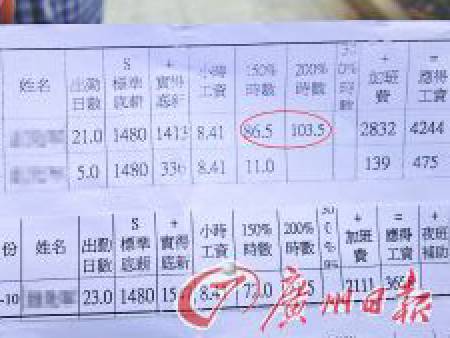 S + + =
姓名 出勤日數 標準底薪 實得底薪 小時工資 150%時數 200%時數 加班費 應得工資
21.0 1480 1413 8.41 86.5 103.5 2832 4244
5.0 1480 336 8.41 11.0 139 475
S + + = +
份 姓名 出勤日數 標準底薪 實得底薪 小時工資 150%時數 200%時數 加班費 應得工資 夜班補助
-10 23.0 1480 2111
廣州日報